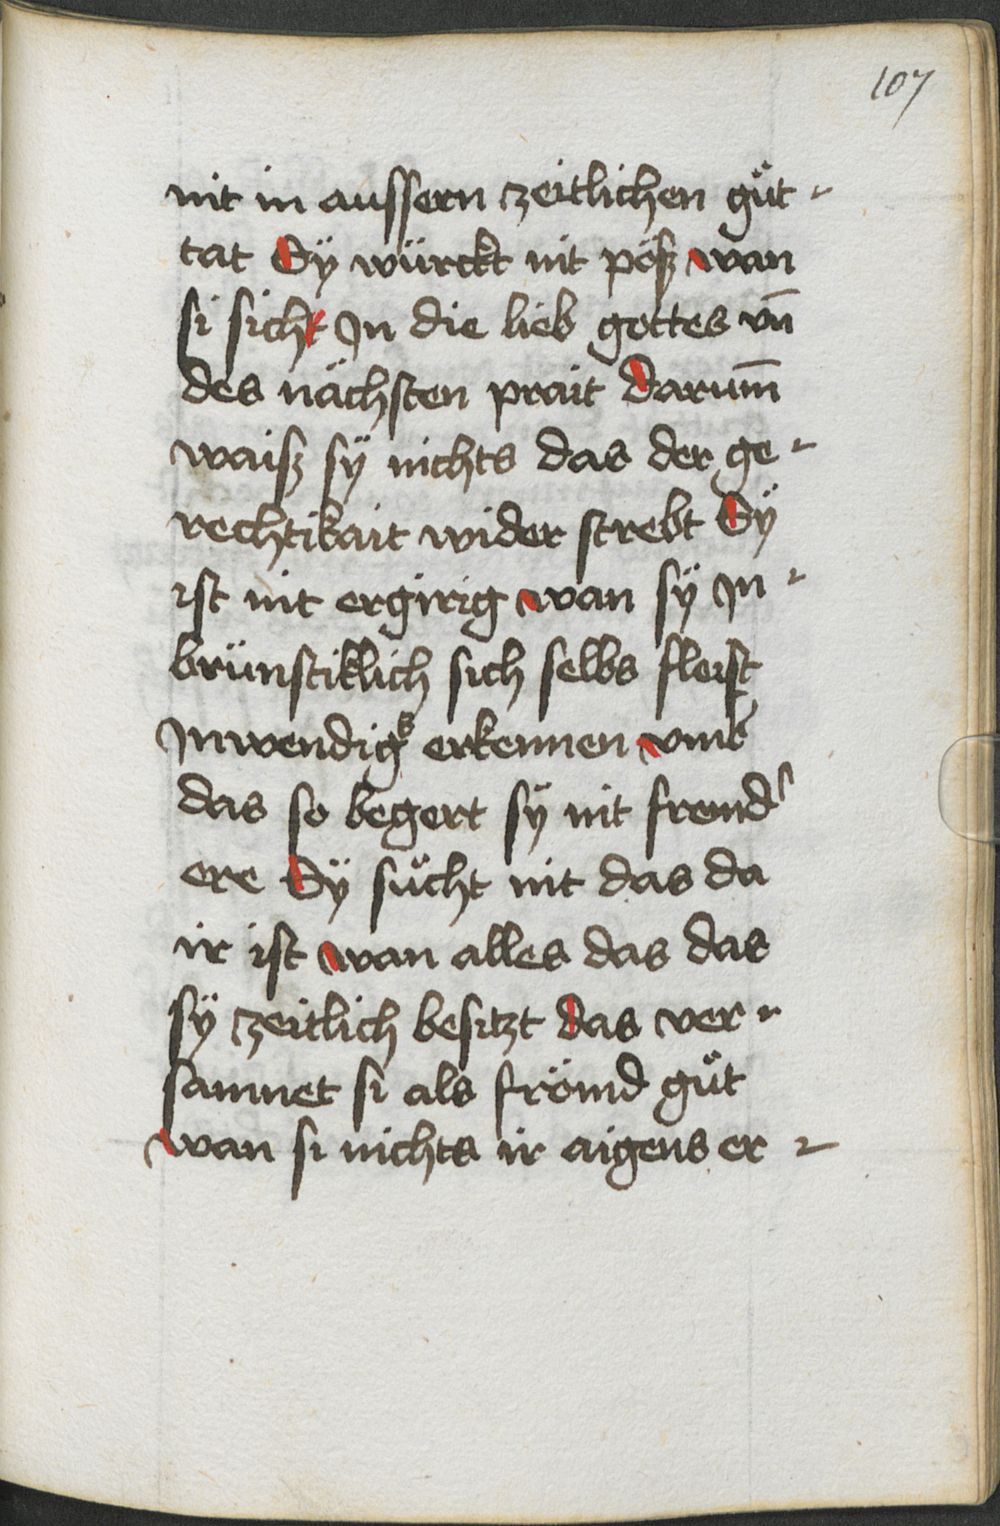 107
nit in aussern zeitlichen guͤt-
tat Sÿ würckt nit pöß wan
si sich In die lieb gottes vn̄
des nächsten prait Darum̄
waiß sÿ nichts das der ge-
rechtikait wider strebt Sÿ
ist nit ergirig wan sÿ In-
brünstiklich sich selbs fleist
Inwendigs erkennen vmb
das so begert sÿ nit fremdˀ
ere Sÿ suͤcht nit das da
ir ist wan alles das das
sÿ zeitlich besitzt das ver-
samnet si als frömd guͤt
wan si nichts ir aigens er-